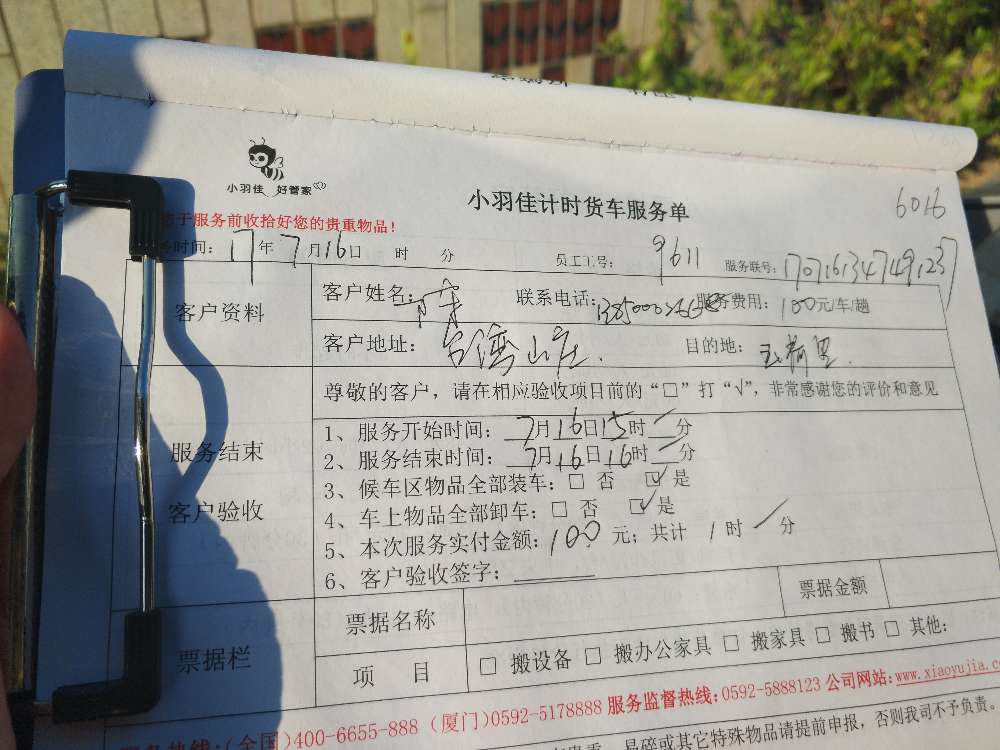 小羽佳 好管家
小羽佳计时货车服务单
6016
于服务前收拾好您的贵重物品!
时间: 17年7月16日 时 分 员工工号: 9611 服务联号: 170716134749123
客户资料
客户姓名: 联系电话: 服务费用: 100元/车/趟
客户地址: 台湾山庄. 目的地: 玉荷里.
尊敬的客户，请在相应验收项目前的“□”打“√”，非常感谢您的评价和意见
服务结束
客户验收
1、服务开始时间: 7月16日15时 — 分
2、服务结束时间: 7月16日16时 — 分
3、候车区物品全部装车: □ 否 ☑ 是
4、车上物品全部卸车: □ 否 ☑ 是
5、本次服务实付金额: 100 元; 共计 1 时 — 分
6、客户验收签字:
票据栏
票据名称 票据金额
项 目 □ 搬设备 □ 搬办公家具 □ 搬家具 □ 搬书 □ 其他:
服务热线:(全国)400-6655-888 (厦门)0592-5178888 服务监督热线:0592-5888123 公司网站:www.xiaoyujia.co
易碎或其它特殊物品请提前申报，否则我司不予负责。